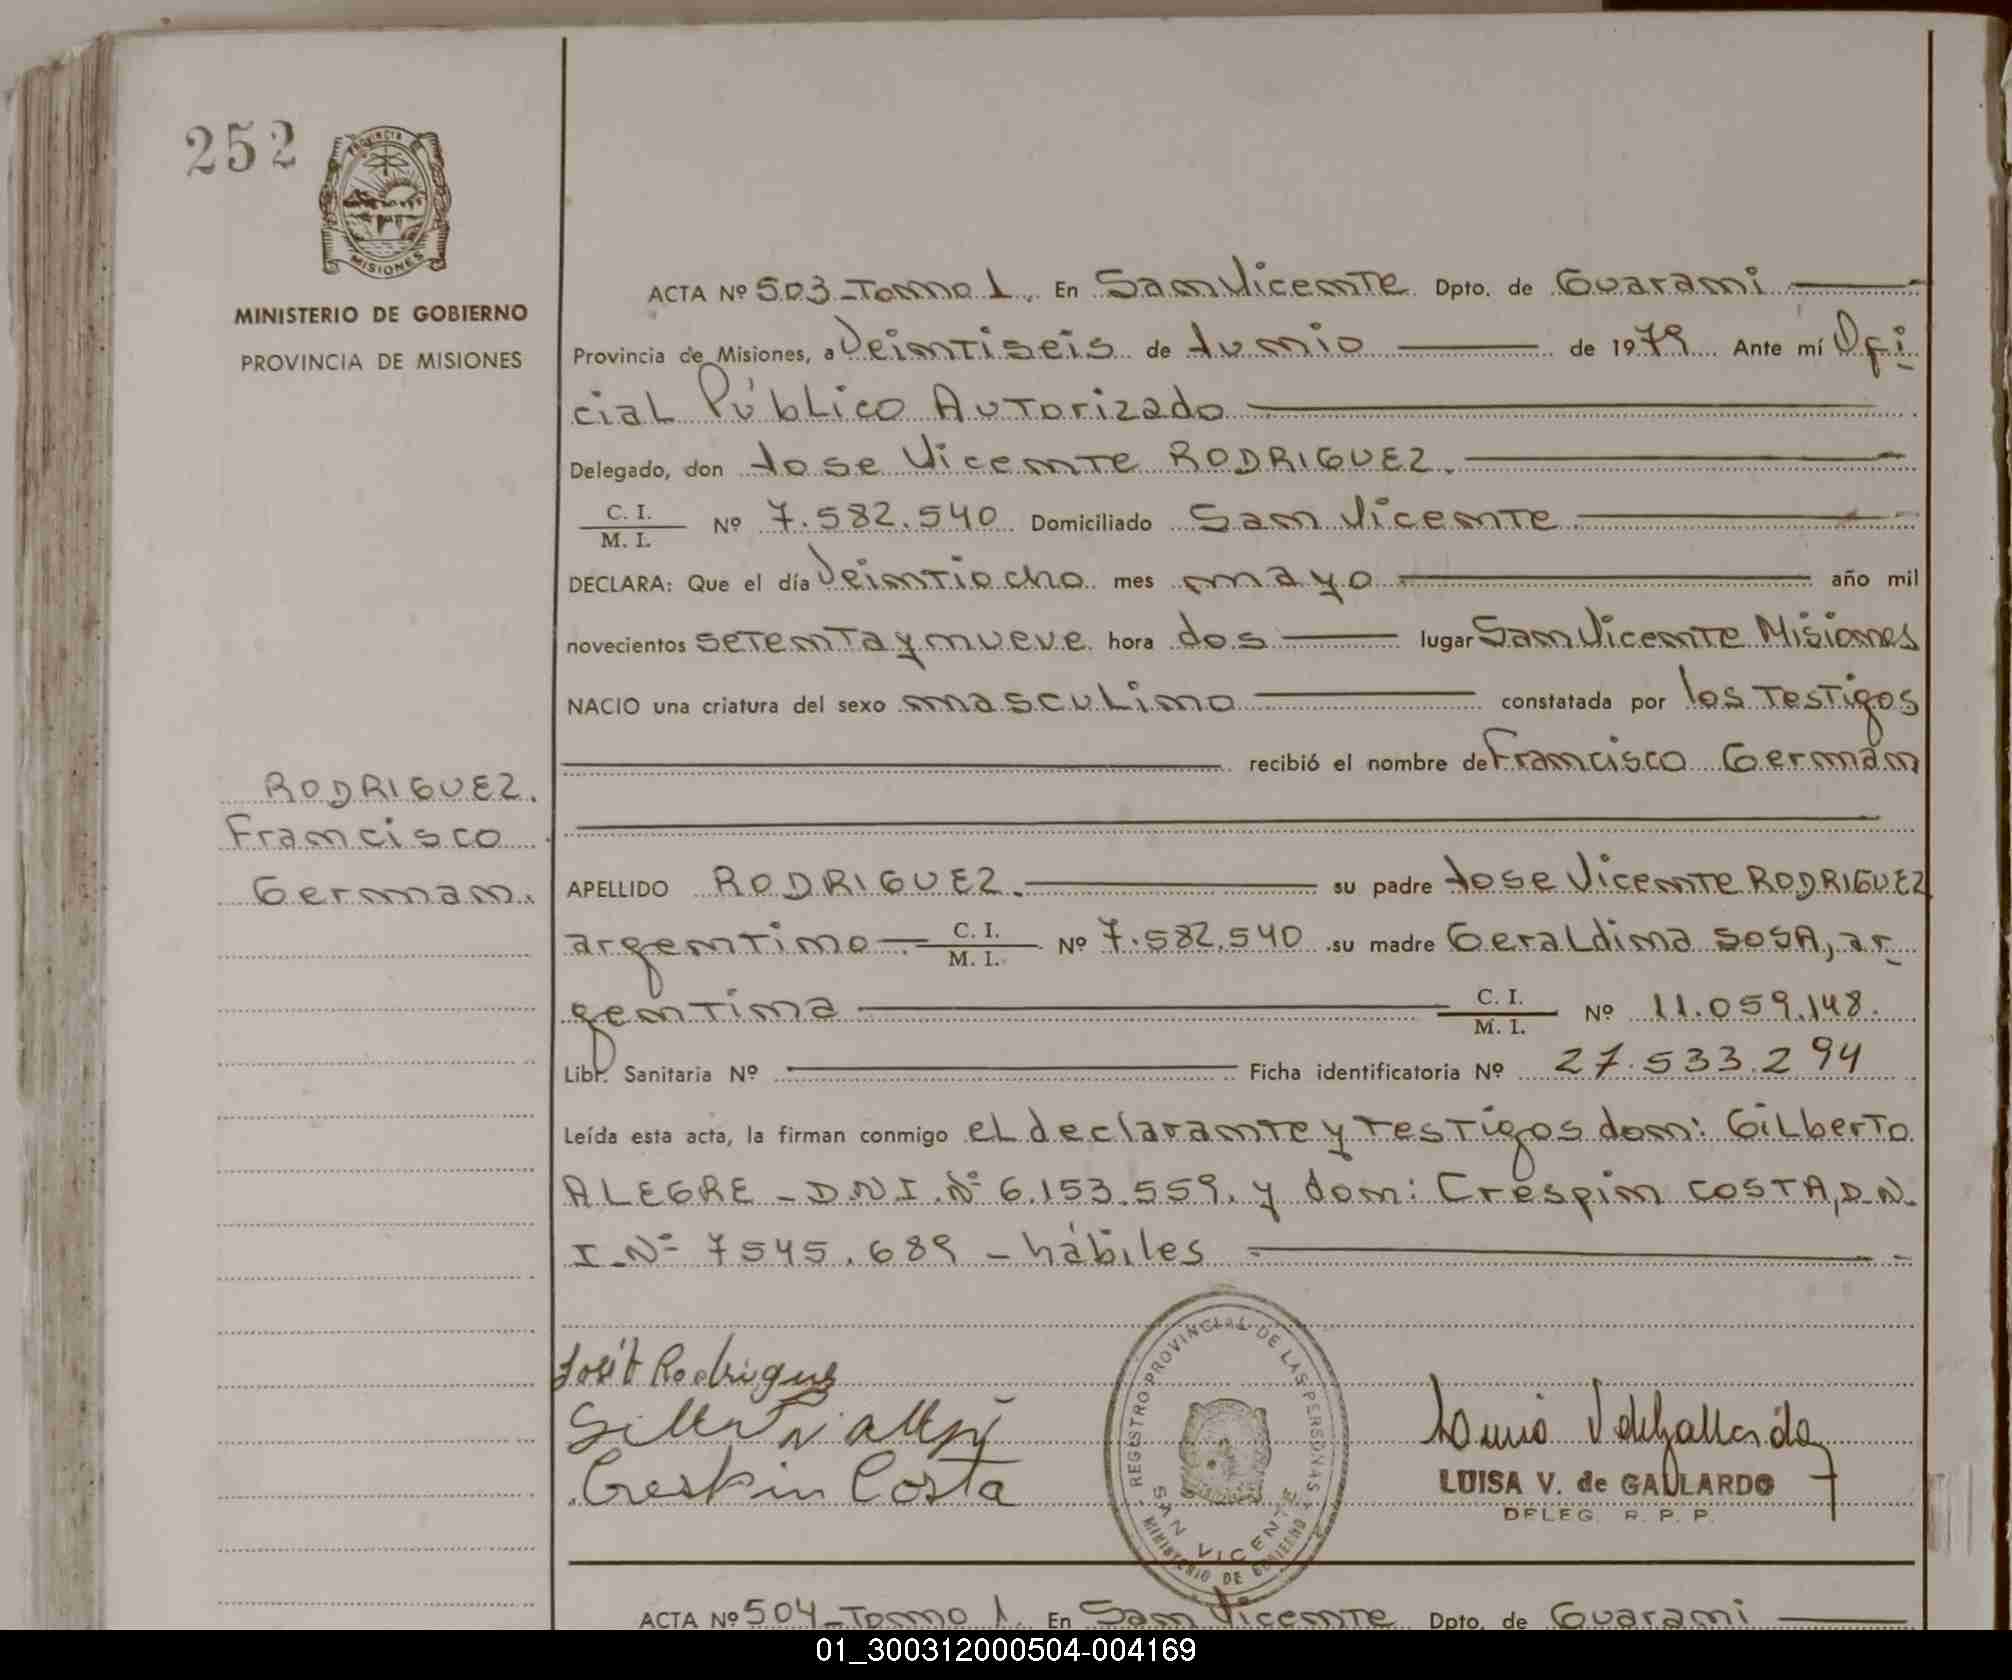 252
PROVINCIA DE
MISIONES
MINISTERIO DE GOBIERNO
PROVINCIA DE MISIONES
ACTA Nº 503-Tomo 1. En San Vicente Dpto. de Guarani
Provincia de Misiones, a Veintiseis de Junio de 1979 Ante mí Ofi
cial Público Autorizado
Delegado, don Jose Vicente RODRIGUEZ.
C. I.
M. I. Nº 7.582.540 Domiciliado San Vicente
DECLARA: Que el día Veintiocho mes mayo año mil
novecientos setenta y nueve hora dos lugar San Vicente Misiones
NACIO una criatura del sexo masculino constatada por los Testigos
recibió el nombre de Francisco Germán
RODRIGUEZ.
Francisco
German.
APELLIDO RODRIGUEZ. su padre Jose Vicente RODRIGUEZ
argentino C. I.
M. I. Nº 7.582.540 su madre Geraldina SOSA, ar
gentina C. I.
M. I. Nº 11.059.148.
Libr. Sanitaria Nº Ficha identificatoria Nº 27.533.294
Leída esta acta, la firman conmigo el declarante y testigos don: Gilberto
ALEGRE - D.N.I. Nº 6.153.559. y don: Crespin COSTA, D.N.
I. Nº 7545.689 - hábiles
Rodrigues
Creskin Costa
REGISTRO PROVINCIAL DE LAS PERSONAS
SAN VICENTE
MINISTERIO DE GOBIERNO
LUISA V. de GALLARDO
DELEG. R. P. P.
ACTA Nº 504-Tomo 1. En San Vicente Dpto. de Guarani
01_300312000504-004169